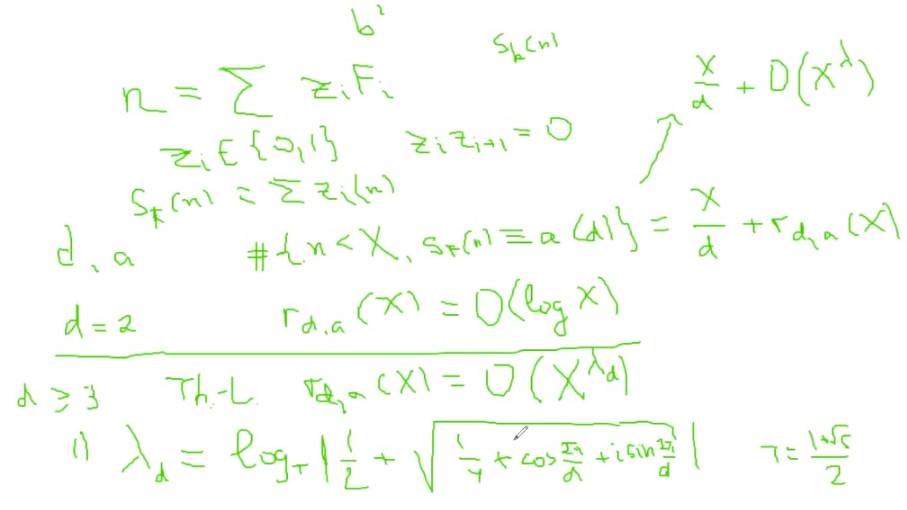 b²
S_b(n)
n = ∑ z_i F_i
x/d + O(x^λ)
z_i ∈ {0,1} z_i z_{i+1} = 0
S_F(n) = ∑ z_i(n)
d, a #{n < X, S_F(n) ≡ a (d)} = X/d + r_{d,a}(X)
d = 2 r_{d,a}(X) = O(log X)
d ≥ 3 Th-L. r_{d,a}(X) = O(X^{λ_d})
1) λ_d = log_τ |1/2 + √(1/4 + cos 2π/d + i sin 2π/d)| τ = (1+√5)/2